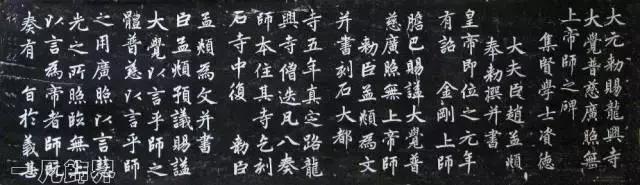 大元勑賜龍興寺
大覺普慈廣照無
上帝師之碑
集賢學士資德
大夫臣趙孟頫
奉勑撰并書
皇帝即位之元年
有詔 金剛上師
膽巴賜謚大覺普
慈廣照無上帝師
勑臣孟頫為文
并書刻石大都
寺五年真定路龍
興寺僧迭凡八奏
師本住其寺乞刻
石寺中復 勑臣
孟頫為文并書
臣孟頫預議賜謚
大覺以言乎師之
體普慈以言乎師
之用廣照以言慧
光之所照臨無上
以言為帝者師既
奏有 旨於義甚